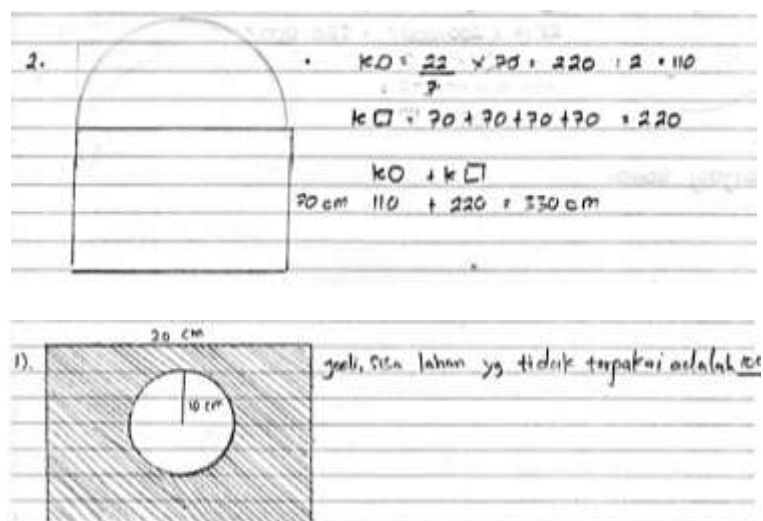 2.
• kO = 22/7 x 70 = 220 : 2 = 110
k□ = 70 + 70 + 70 + 70 = 220
kO + k□
70 cm 110 + 220 = 330 cm
20 cm
1). jadi, sisa lahan yg tidak terpakai adalah
10 cm